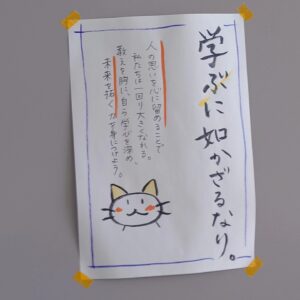 学ぶに如かざるなり。
人の思いを心に留めることで
私たちは一回り大きくなれる。
教えを胸に、自ら学びを深め、
未来を拓く力を身につけよう。